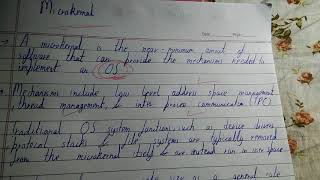 Microkernal
Date: Page:
→ A microkernal is the near-minimum amount of
software that can provide the mechanisms needed to
implement an OS
→ Mechanisms include low level address space management,
thread management, & inter process communication (IPC)
Traditional OS system functions, such as device drivers,
protocol stacks & file systems are typically removed
from the microkernel itself & are instead run in user space
as a general rule